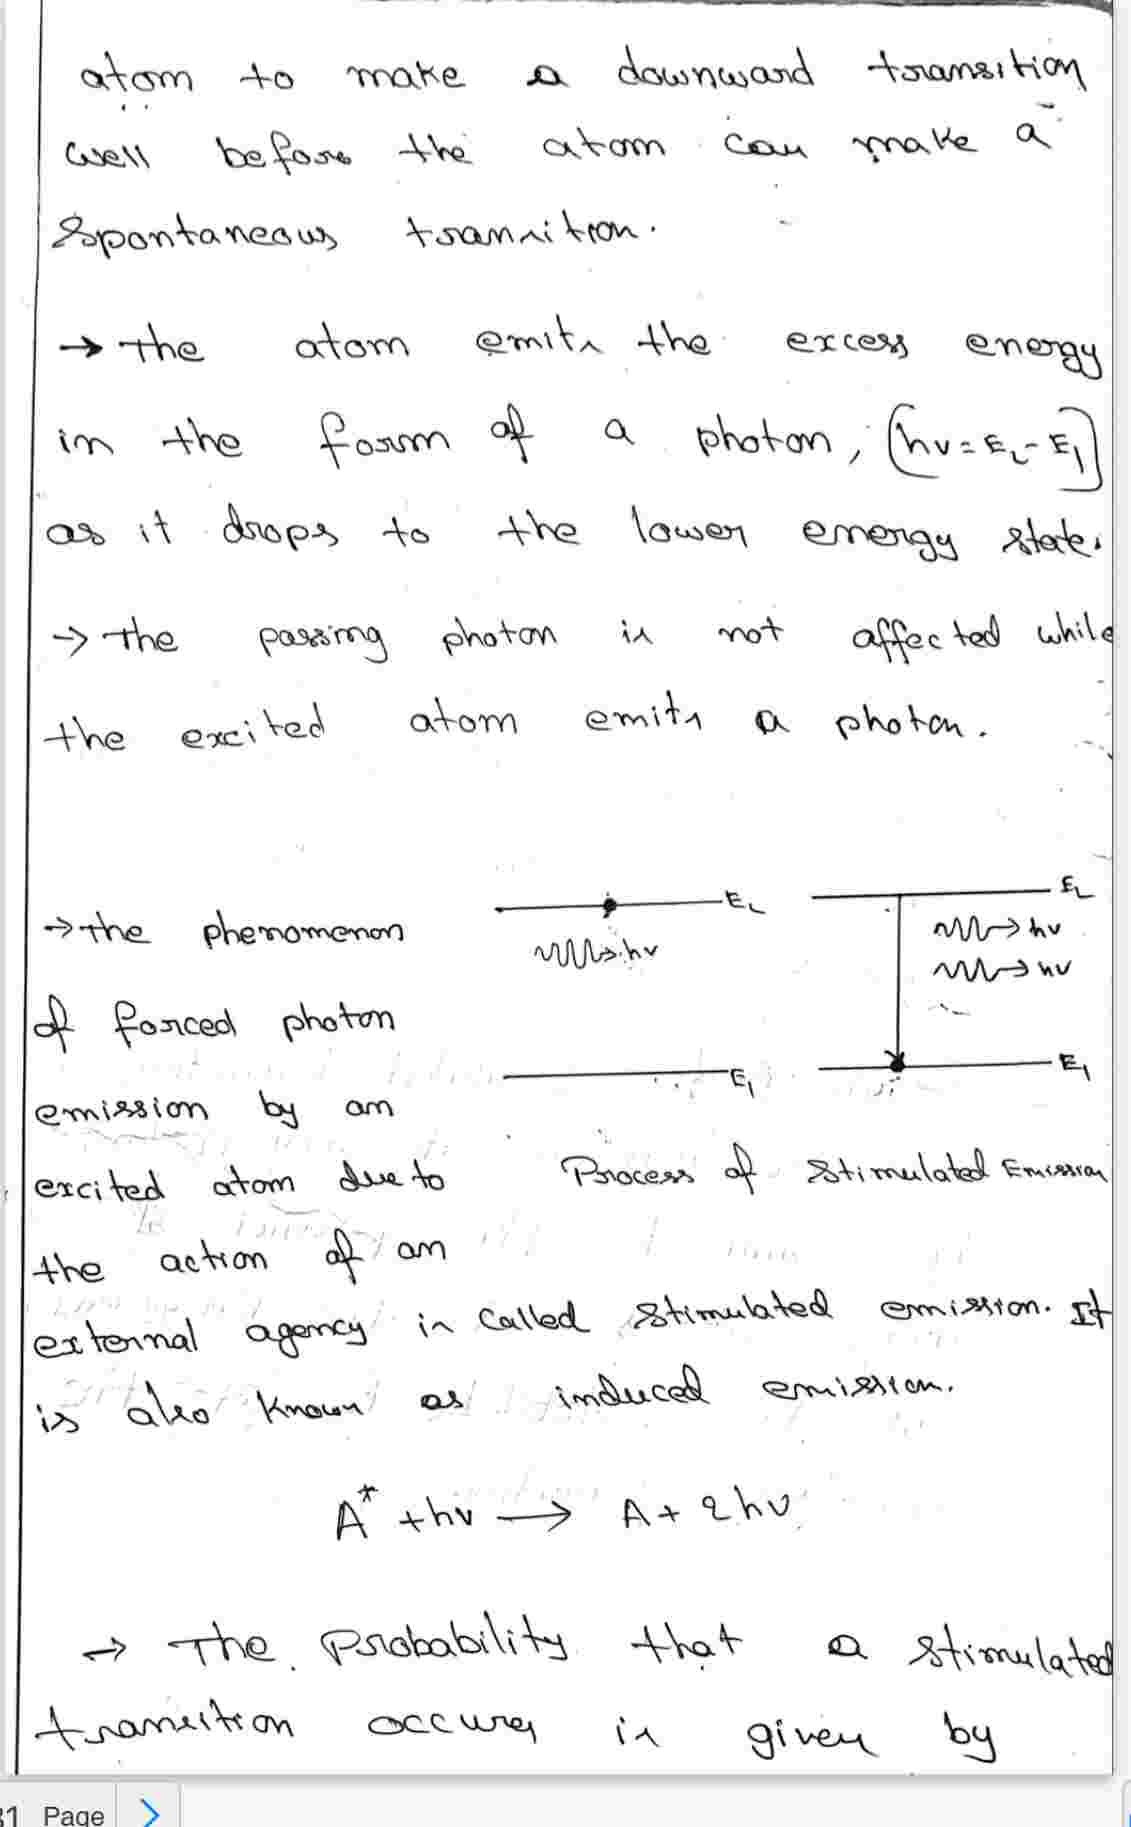 atom to make a downward transition
well before the atom can make a
spontaneous transition.
→ The atom emits the excess energy
in the form of a photon, (hν = E₂ - E₁]
as it drops to the lower energy state.
→ The passing photon is not affected while
the excited atom emits a photon.
E₂
E₂
→ the phenomenon
hν
hν
hν
of forced photon
E₁
E₁
emission by an
excited atom due to
Process of Stimulated Emission
the action of an
external agency is called stimulated emission. It
is also known as induced emission.
A* + hν → A + 2hν
→ The Probability that a stimulated
transition occurs is given by
31 Page >